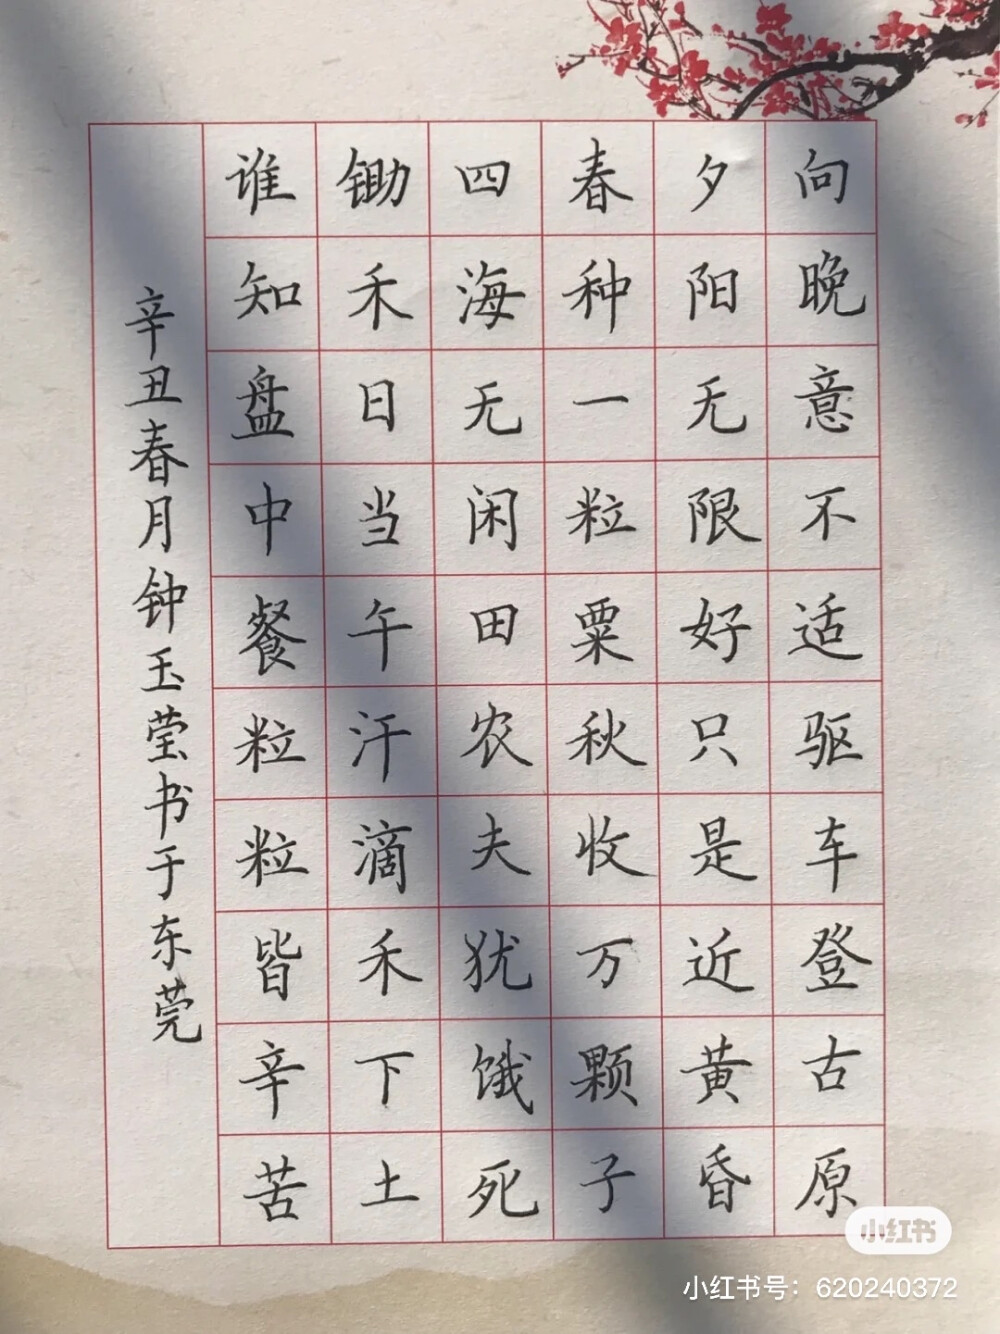 向晚意不适驱车登古原
夕阳无限好只是近黄昏
春种一粒粟秋收万颗子
四海无闲田农夫犹饿死
锄禾日当午汗滴禾下土
谁知盘中餐粒粒皆辛苦
辛丑春月钟玉莹书于东莞
小红书
小红书号：620240372